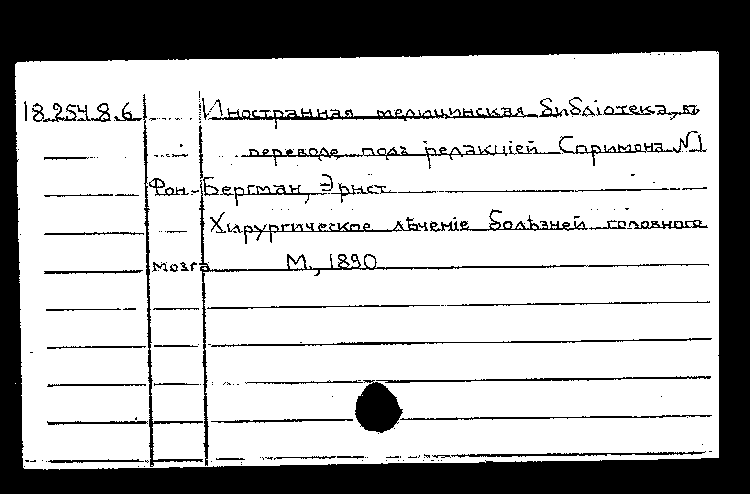 18.254.8.6 Иностранная медицинская библіотека, въ
переводе подъ редакціей Спримона №1
Фон-Бергман, Эрнст
Хирургическое лѣченіе болѣзней головного
мозга М., 1890